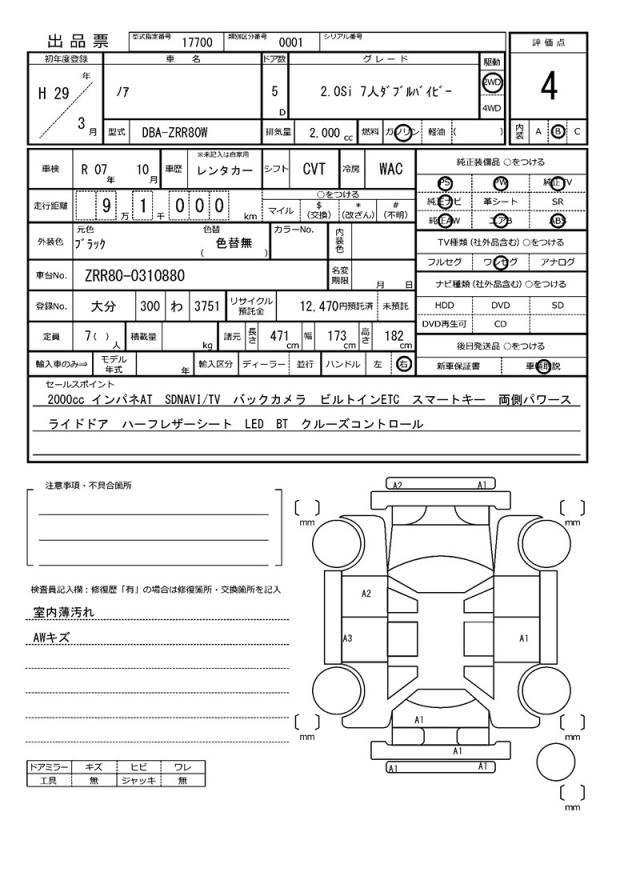 出品票
型式指定番号 17700 類別区分番号 0001 シリアル番号
評価点
4
内装 A B C
初年度登録 車名 ドア数 グレード 駆動
H 29 年 3 月
ノア
5 D
2.0Si 7人ダブルバイビー
2WD
4WD
型式 DBA-ZRR80W 排気量 2,000 cc 燃料 ガソリン 軽油 ( )
車検 R 07 年 10 月 車歴 ※未記入は自家用 レンタカー シフト CVT 冷房 WAC
走行距離 9 万 1 千 0 0 0 km
○をつける
マイル $ (交換) * (改ざん) # (不明)
外装色 元色 ブラック 色替 ( 色替無 ) カラーNo. 内装色
車台No. ZRR80-0310880 名変期限 月 日
登録No. 大分 300 わ 3751 リサイクル預託金 12,470円預託済 未預託
定員 7( ) 人 積載量 kg 諸元 長さ 471 cm 幅 173 cm 高さ 182 cm
輸入車のみ⇒ モデル年式 年 輸入区分 ディーラー 並行 ハンドル 左 右
純正装備品 ○をつける
PS PW 純正TV
純正ナビ 革シート SR
純正AW エアB ABS
TV種類 (社外品含む) ○をつける
フルセグ ワンセグ アナログ
ナビ種類 (社外品含む) ○をつける
HDD DVD SD
DVD再生可 CD
後日発送品 ○をつける
新車保証書 車輌取説
セールスポイント
2000cc インパネAT SDNAVI/TV バックカメラ ビルトインETC スマートキー 両側パワース
ライドドア ハーフレザーシート LED BT クルーズコントロール
注意事項・不具合箇所
検査員記入欄：修復歴「有」の場合は修復箇所・交換箇所を記入
室内薄汚れ
AWキズ
ドアミラー キズ ヒビ ワレ
工具 無 ジャッキ 無
A2 A1
[ ] mm [ ] mm
A2
A3 A1
A1
[ ] mm [ ] mm
A1
A1 A1
[ ] mm